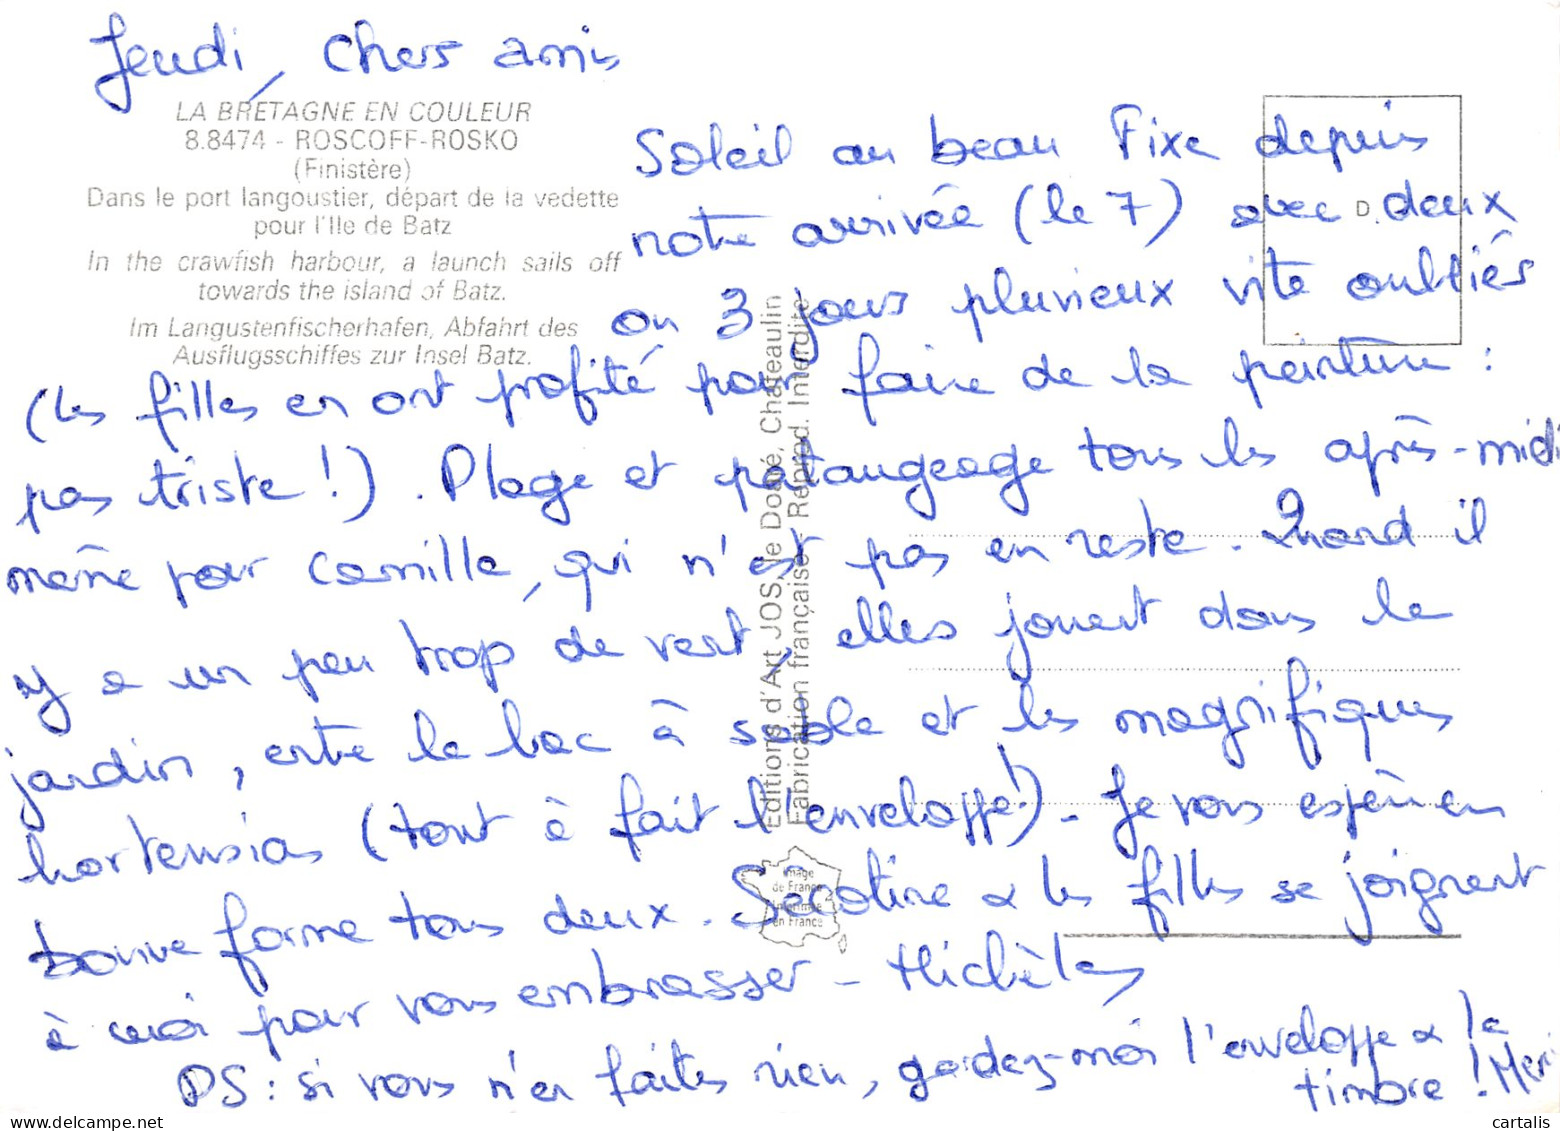 Jeudi, Chers amis
LA BRETAGNE EN COULEUR
8.8474 - ROSCOFF-ROSKO
(Finistère)
Dans le port langoustier, départ de la vedette
pour l'Ile de Batz
In the crawfish harbour, a launch sails off
towards the island of Batz.
Im Langustenfischerhafen, Abfahrt des
Ausflugsschiffes zur Insel Batz.
Soleil au beau Fixe depuis
notre arrivée (le 7) avec deux
ou 3 jours pluvieux vite oubliés
(les filles en ont profité pour faire de la peinture :
pas triste !). Plage et pataugeage tous les après-midi
même pour Camille, qui n'est pas en reste. Quand il
y a un peu trop de vent, elles jouent dans le
jardin, entre le bac à sable et les magnifiques
hortensias (tout à fait l'enveloppe !) - Je vous espère en
bonne forme tous deux. Secotine & les filles se joignent
à moi pour vous embrasser - Michèle
PS : si vous n'en faites rien, gardez-moi l'enveloppe & le
timbre ! Merci
D.
Editions d'Art JOS, le Doaré, Châteaulin
Fabrication française Reprod. Interdite
Image
de France
Imprimée
en France
www.delcampe.net
cartalis